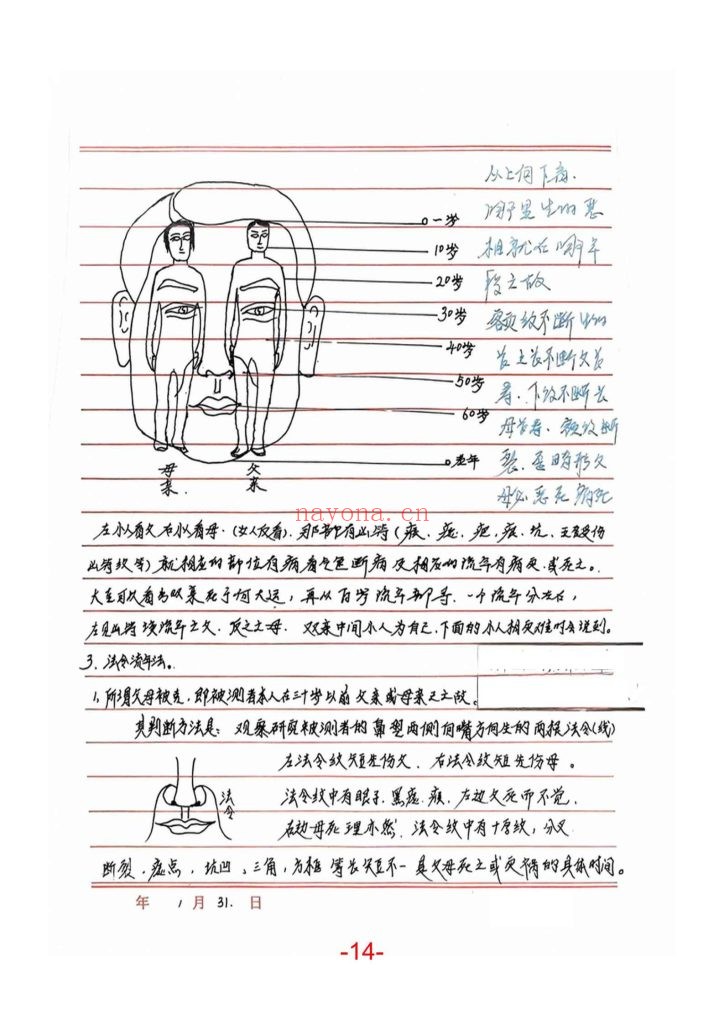 从上向下看.
哪里生的恶
相就在哪年
段之故
额纹不断生的
若上长不断父长
寿、下纹不断长
母长寿、额纹断
裂、歪曲形父
母必恶死病死
0一岁
10岁
20岁
30岁
40岁
50岁
60岁
老年
母亲.
父亲
nayona.cn
左小人看父右小人看母.(女人反看). 那部有凶符(痕、痣、疤、痕、坑、
凶符纹等)就相应的部位有病看气色断病及相应的流年有病灾.或死之。
大至可以看出双亲死于何大运,再从百岁流年部等.一个流年分左右,
左见凶符该流年亡父、反之亡母. 双亲中间小人为自己,下面的小人相灾难时会说到。
3. 法令流年法。
1. 所谓父母被克,即被测者本人在三十岁以前父亲或母亲亡之故。
其判断方法是: 观察研究被测者的鼻型两侧向嘴方向生的两根法令(线)
左法令纹短先伤父、右法令纹短先伤母。
法令
法令纹中有眼子、黑痣、痕、左边父死而不觉.
右边母死理亦然. 法令纹中有十字纹,分叉.
断裂.痣点,坑凹、三角,方框等长短不一是父母死亡或灾病的具体时间。
年 1月 31. 日
-14-